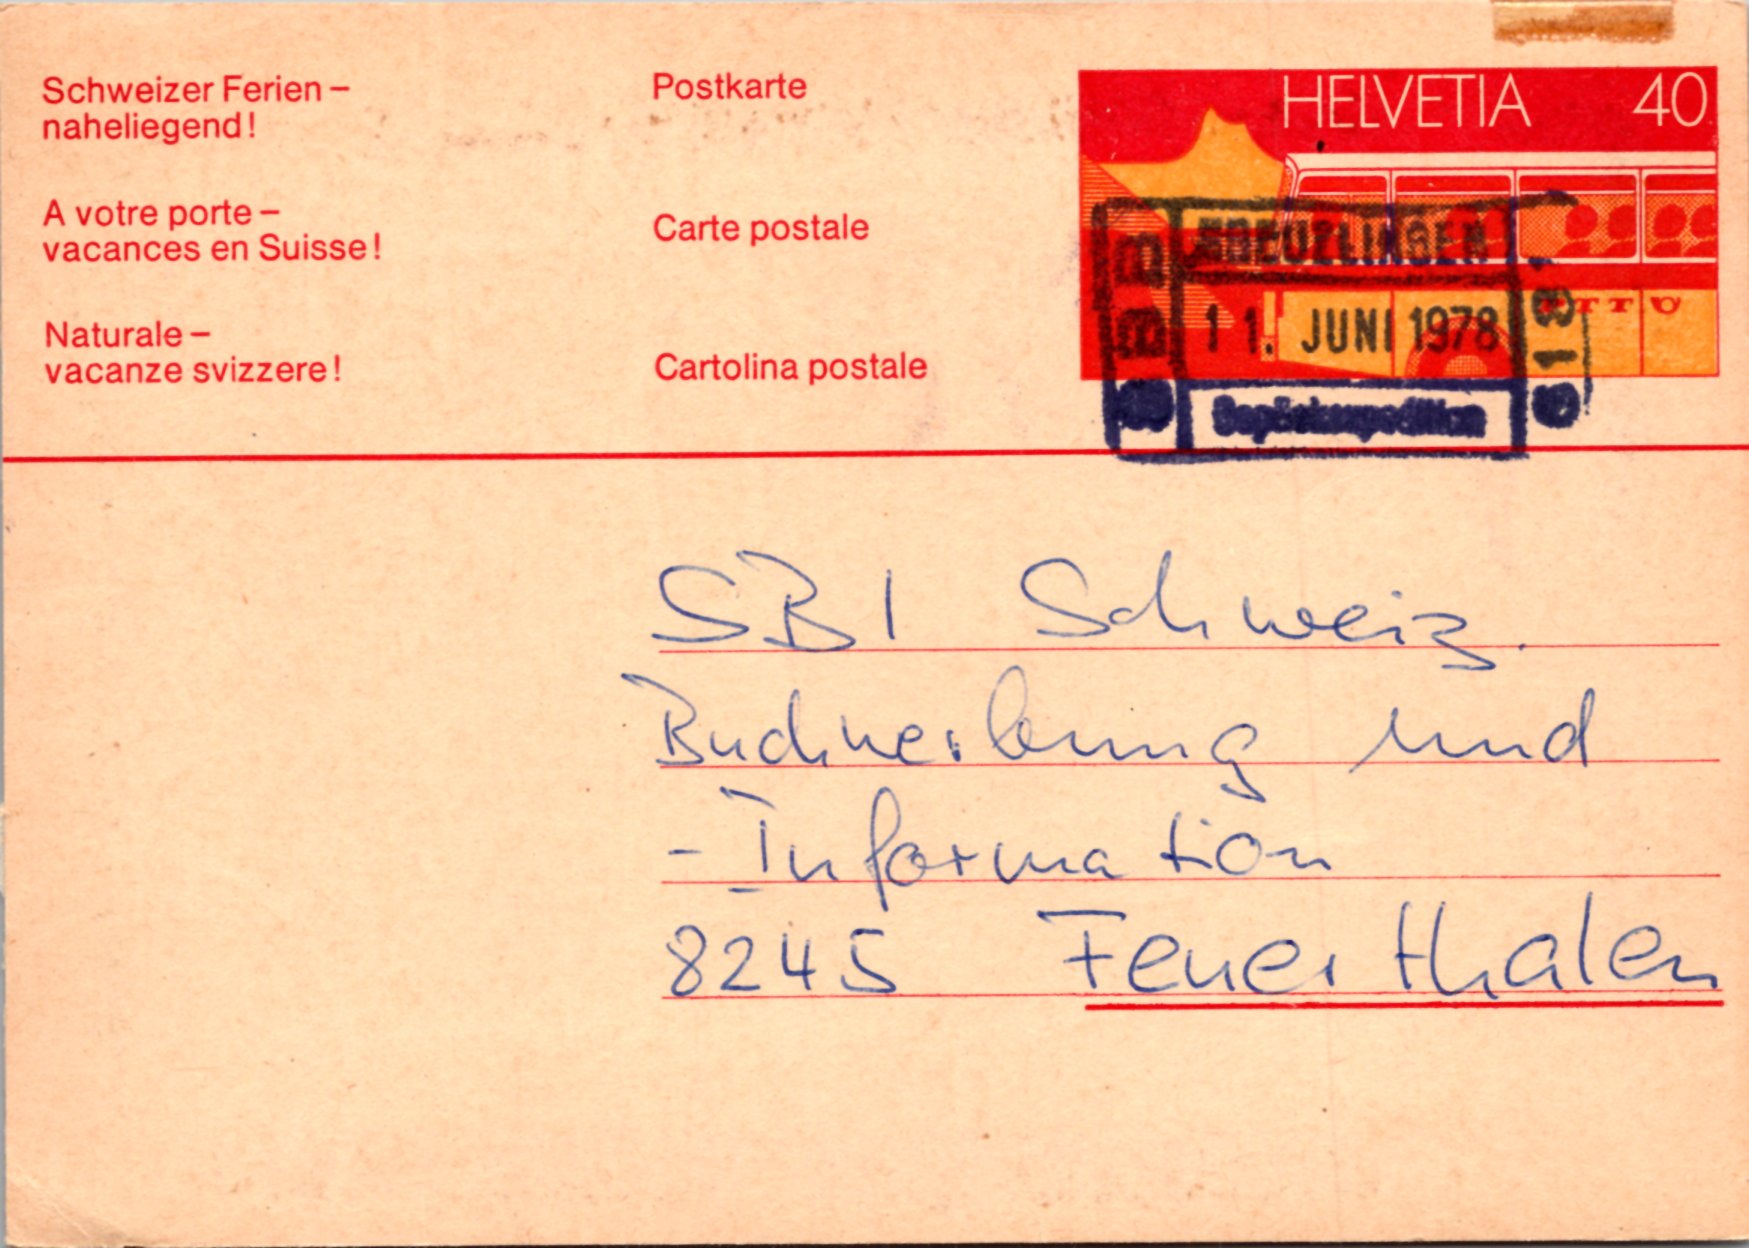 Schweizer Ferien –
naheliegend!
A votre porte –
vacances en Suisse!
Naturale –
vacanze svizzere!
Postkarte
Carte postale
Cartolina postale
HELVETIA 40
PTT
SBB
KREUZLINGEN
11. JUNI 1978
Gepäckexpedition
SBI Schweiz.
Buchwerbung und
- Information
8245 Feuerthalen